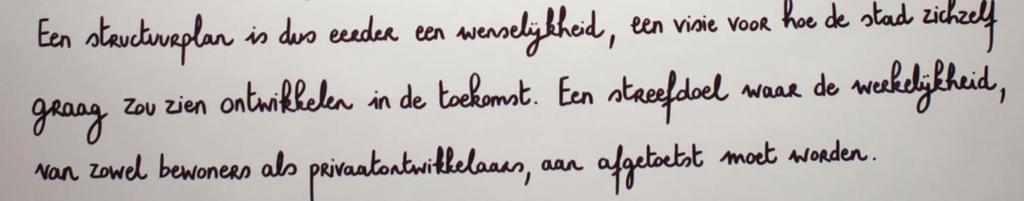 Een structuurplan is dus eerder een wenselijkheid, een visie voor hoe de stad zichzelf
graag zou zien ontwikkelen in de toekomst. Een streefdoel waar de werkelijkheid,
van zowel bewoners als privaatontwikkelaars, aan afgetoetst moet worden.